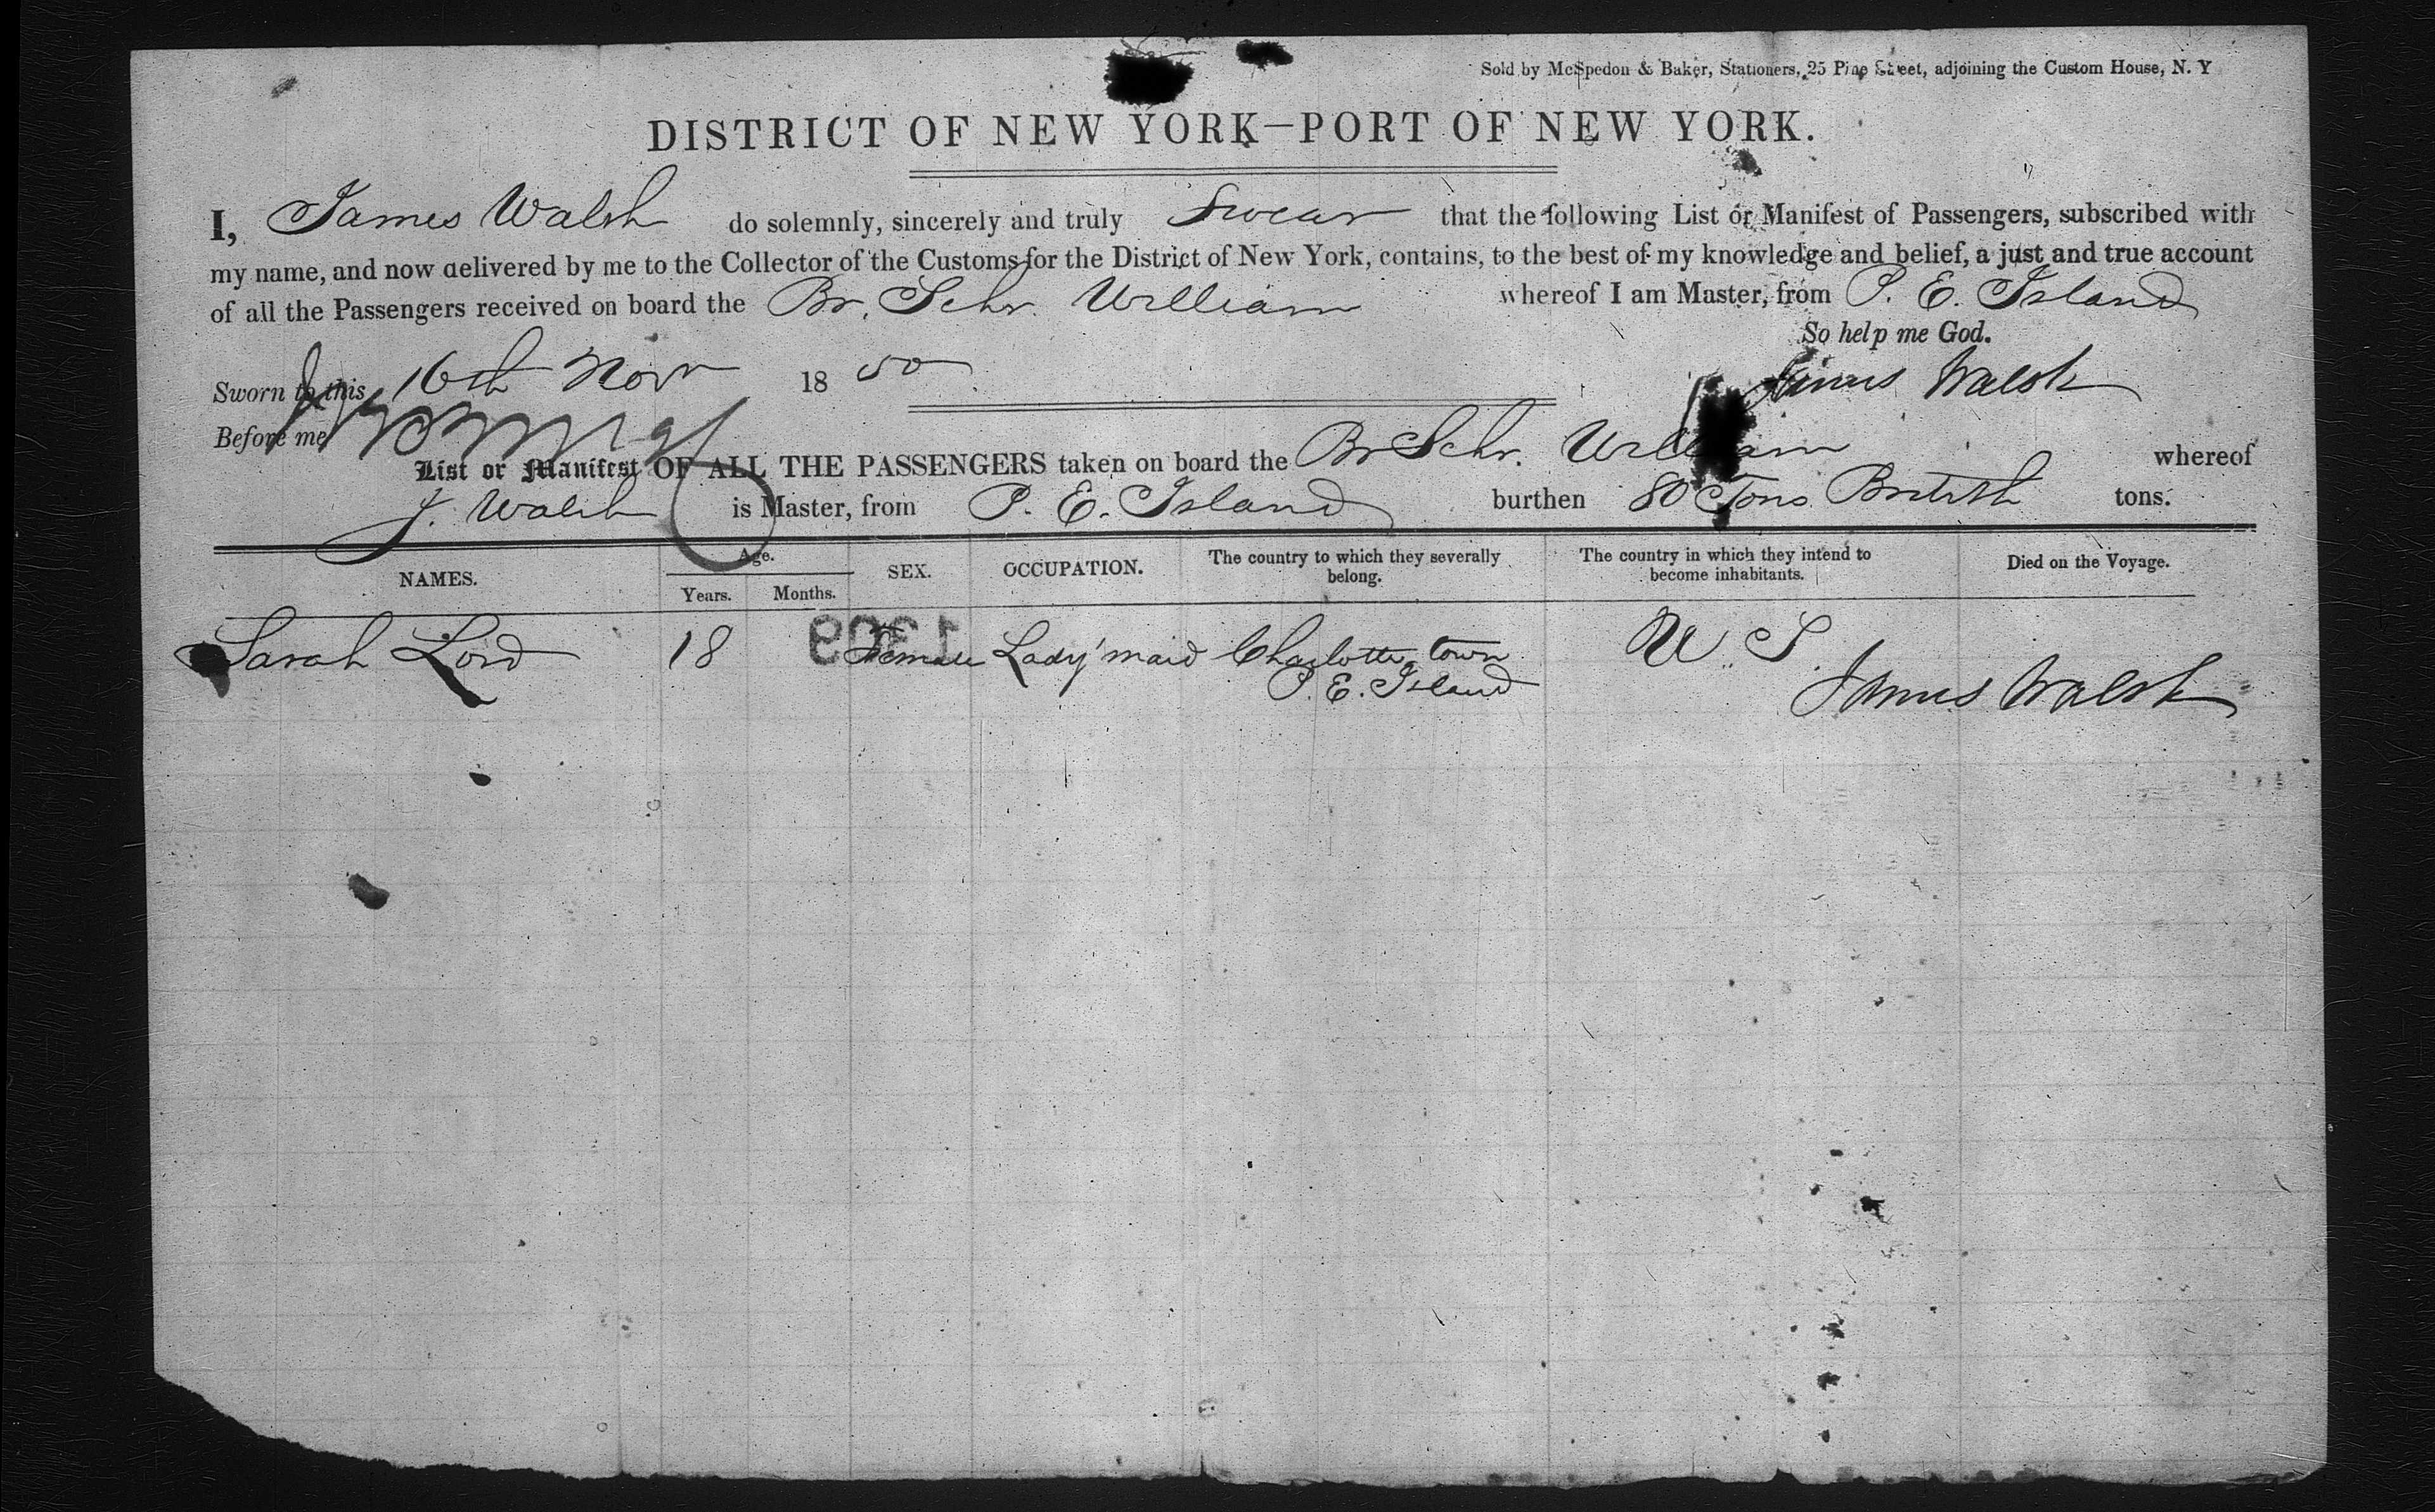 Sold by McSpedon & Baker, Stationers, 25 Pine Street, adjoining the Custom House, N. Y
DISTRICT OF NEW YORK—PORT OF NEW YORK.
I, James Walsh do solemnly, sincerely and truly Swear that the following List or Manifest of Passengers, subscribed with
my name, and now delivered by me to the Collector of the Customs for the District of New York, contains, to the best of my knowledge and belief, a just and true account
of all the Passengers received on board the Br. Schr. William whereof I am Master, from P. E. Island
So help me God.
Sworn to this 16th Novr 1850 James Walsh
Before me
List or Manifest OF ALL THE PASSENGERS taken on board the Br Schr. William whereof
J. Walsh is Master, from P. E. Island burthen 80 Tons British tons.
NAMES. Age. Years. Months. SEX. OCCUPATION. The country to which they severally belong. The country in which they intend to become inhabitants. Died on the Voyage.
Sarah Lord 18 Female Lady'maid Charlotte town U. S.
P. E. Island James Walsh